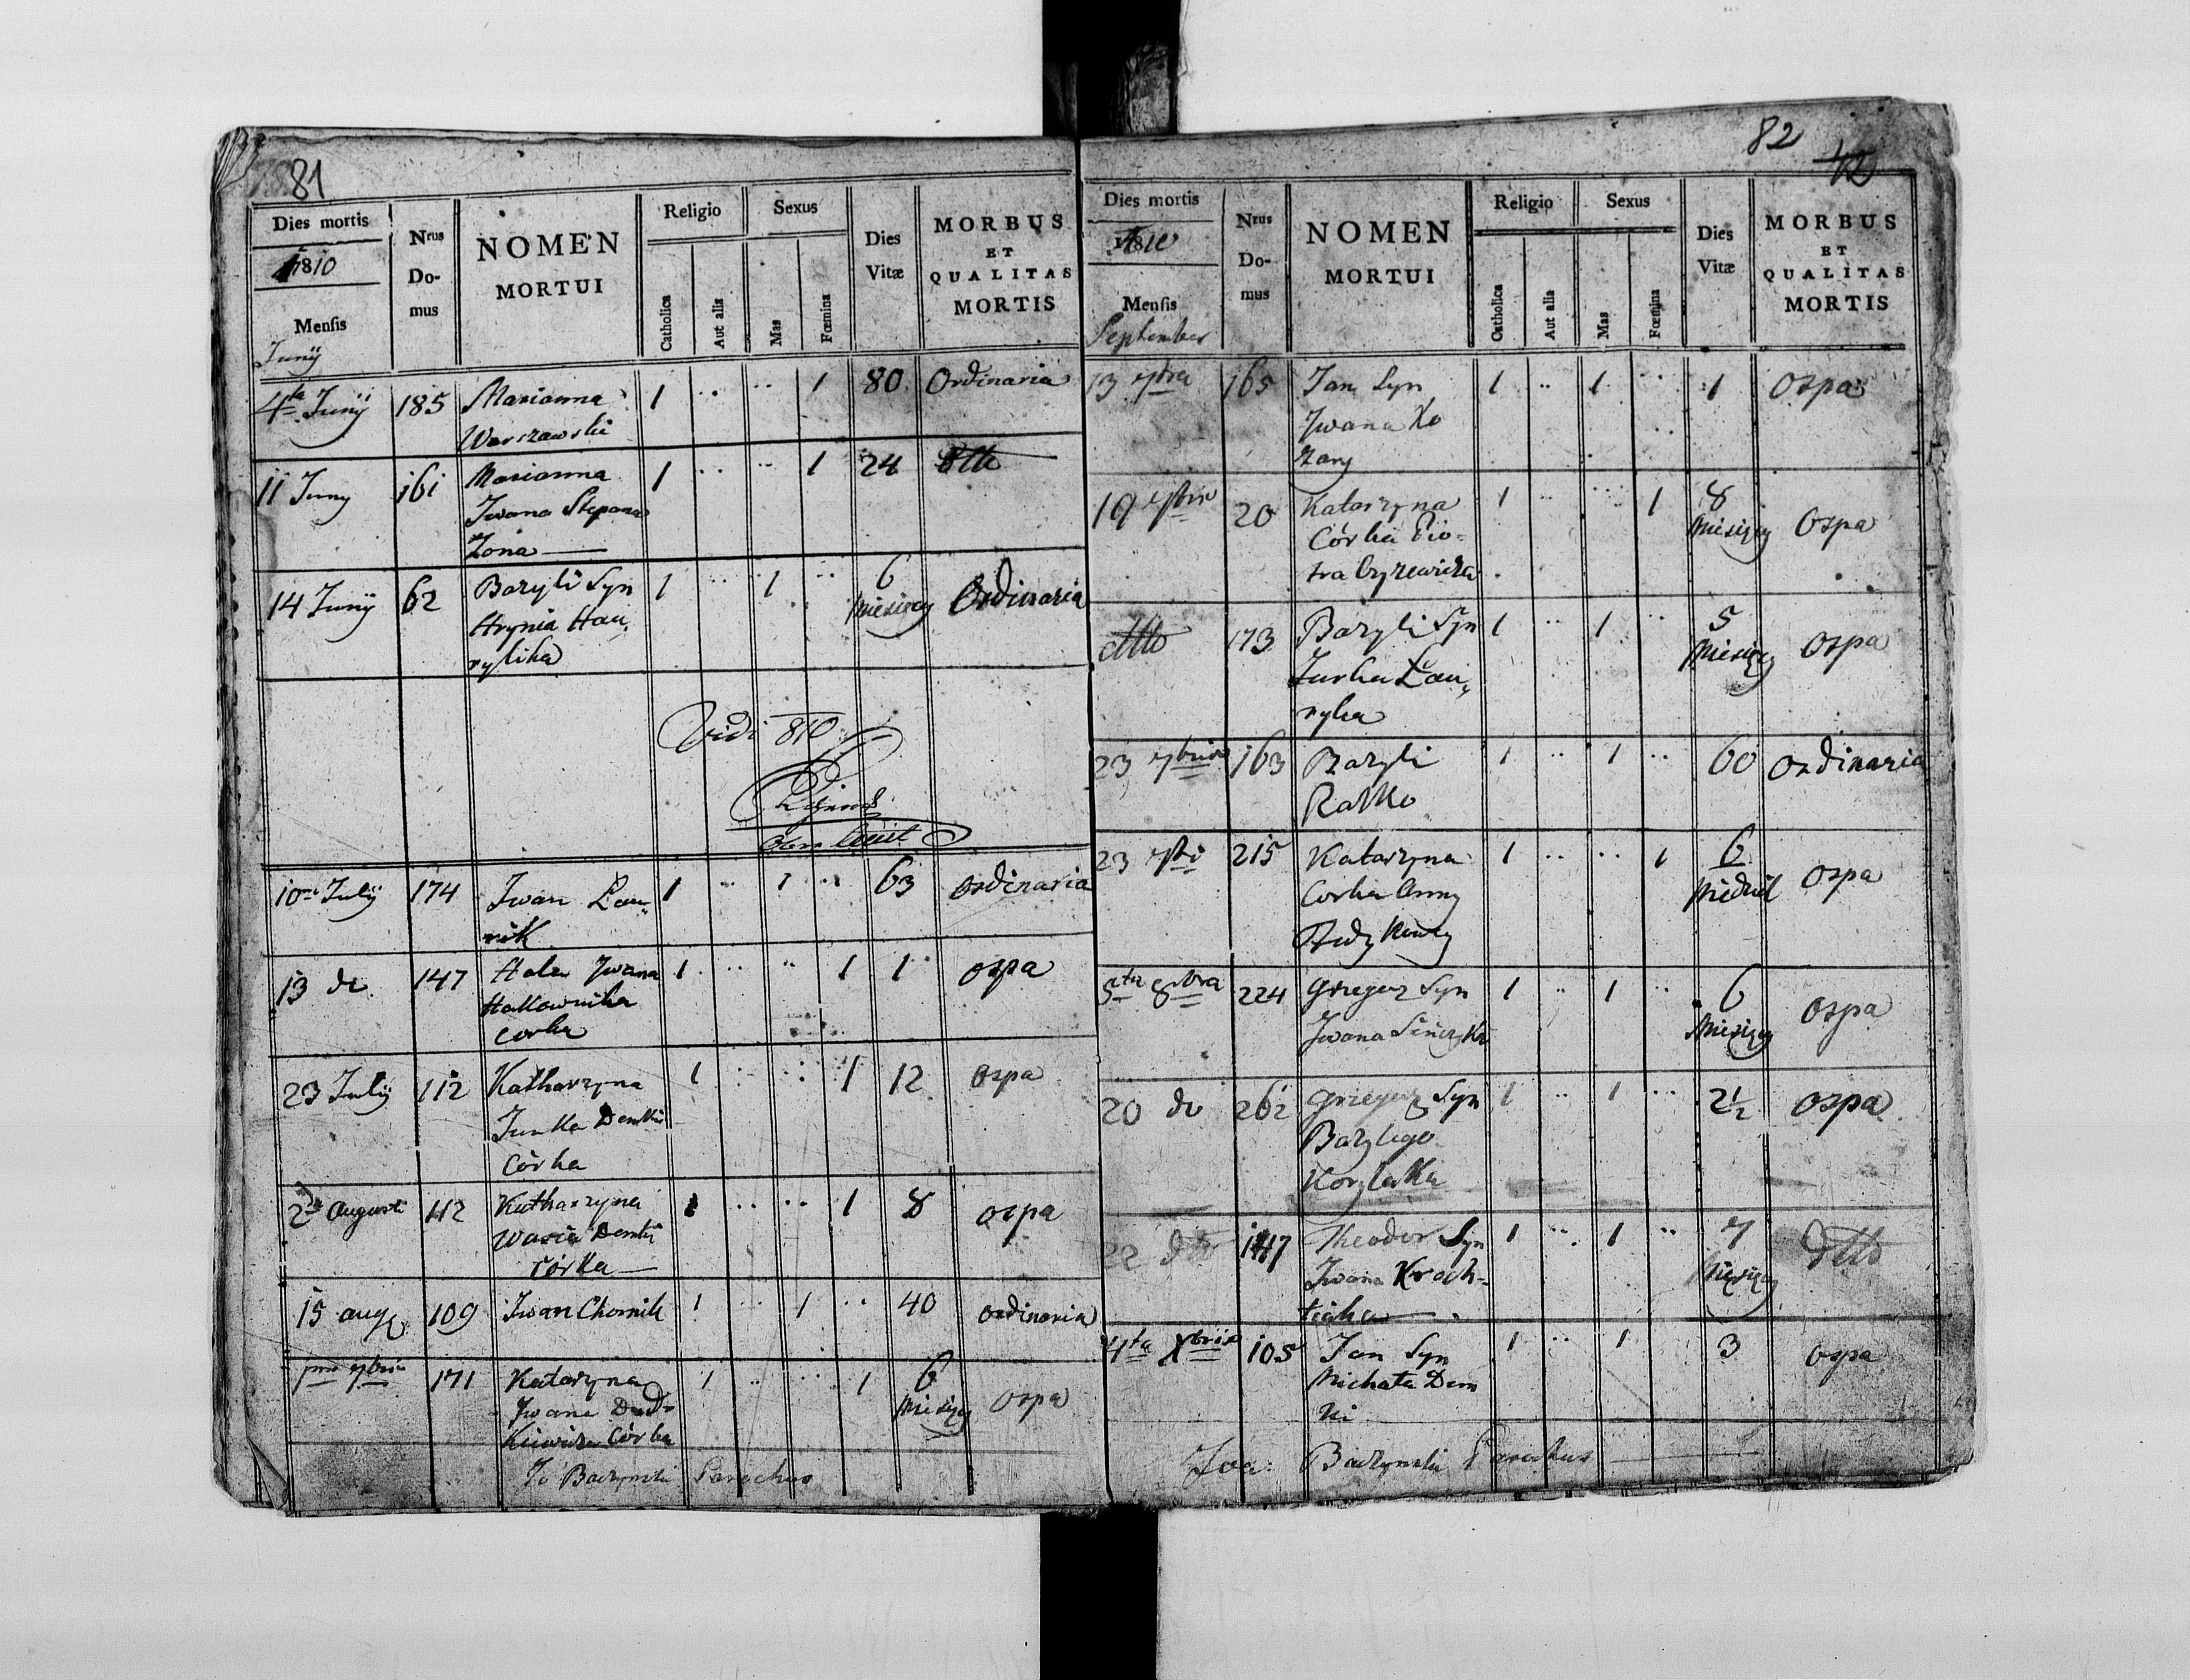 81
Dies mortis
1810
Mensis
Junij
Nrus Domus
NOMEN MORTUI
Religio
Catholica
Aut alia
Sexus
Mas
Fœmina
Dies Vitæ
MORBUS ET QUALITAS MORTIS
4ta Junij 185 Marianna 1 .. .. 1 80 Ordinaria
Warszawski
11 Juny 161 Marianna 1 .. .. 1 24 dtto
Iwana Stepana
Żona
14 Junij 62 Bazyli Syn 1 .. 1 .. 6 Miesięcy Ordinaria
Hrynia Hau,
rylika
Vidi 810
10ma Julij 174 Iwan Lau, 1 .. 1 .. 63 ordinaria
rik
13 do 147 Iwana 1 .. .. 1 1 ospa
corka
23 Julij 112 Katharzyna 1 .. .. 1 12 ospa
córka
2da Augusti 112 Katharzyna 1 .. .. 1 8 ospa
Wasia
córka
15 aug 109 Iwan Chomik 1 .. 1 .. 40 ordinaria
1ma 7bris 171 Katarzyna 1 .. .. 1 6 Miesięcy ospa
Iwana Dud-
kiewicza Córka
Jo Baczynski Parochus
82
42
Dies mortis
1810
Mensis
September
Nrus Domus
NOMEN MORTUI
Religio
Catholica
Aut alia
Sexus
Mas
Fœmina
Dies Vitæ
MORBUS ET QUALITAS MORTIS
13 7bra 165 Jan Syn 1 .. 1 .. 1 Ospa
Iwana Ko
zary
19 7bris 20 Katarzyna 1 .. .. 1 8 Miesięcy Ospa
Córka Pio-
tra
dtto 173 Bazyli Syn 1 .. 1 .. 5 Miesięcy Ospa
Jurka Lau,
ryka
23 7bris 163 Bazyli 1 .. 1 .. 60 Ordinaria
Ratko
23 215 Katarzyna 1 .. .. 1 6 Niedziel ospa
Corka Anny
5ta 8bra 224 Grzegorz Syn 1 .. 1 .. 6 Miesięcy ospa
Iwana
20 do 262 Grzegorz Syn 1 .. 1 .. 2½ ospa
Bazylego
22 dtto 147 Theodor Syn 1 .. 1 .. 7 Miesięcy dtto
Iwana Kroch-
4ta Xbris 105 Jan Syn 1 .. 1 .. 3 ospa
Michała Dem
ki
Joa: Baczynski Parochus